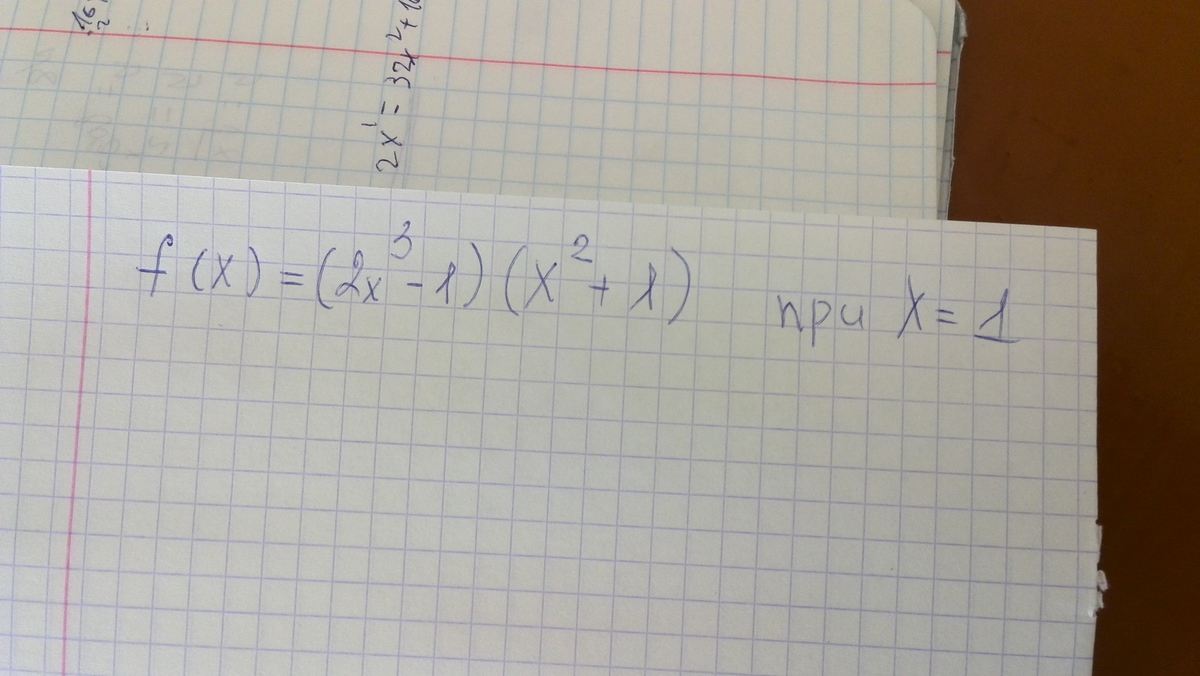 2x' = 32x² + 1
f(x) = (2x³ - 1)(x² + 1) при x = 1